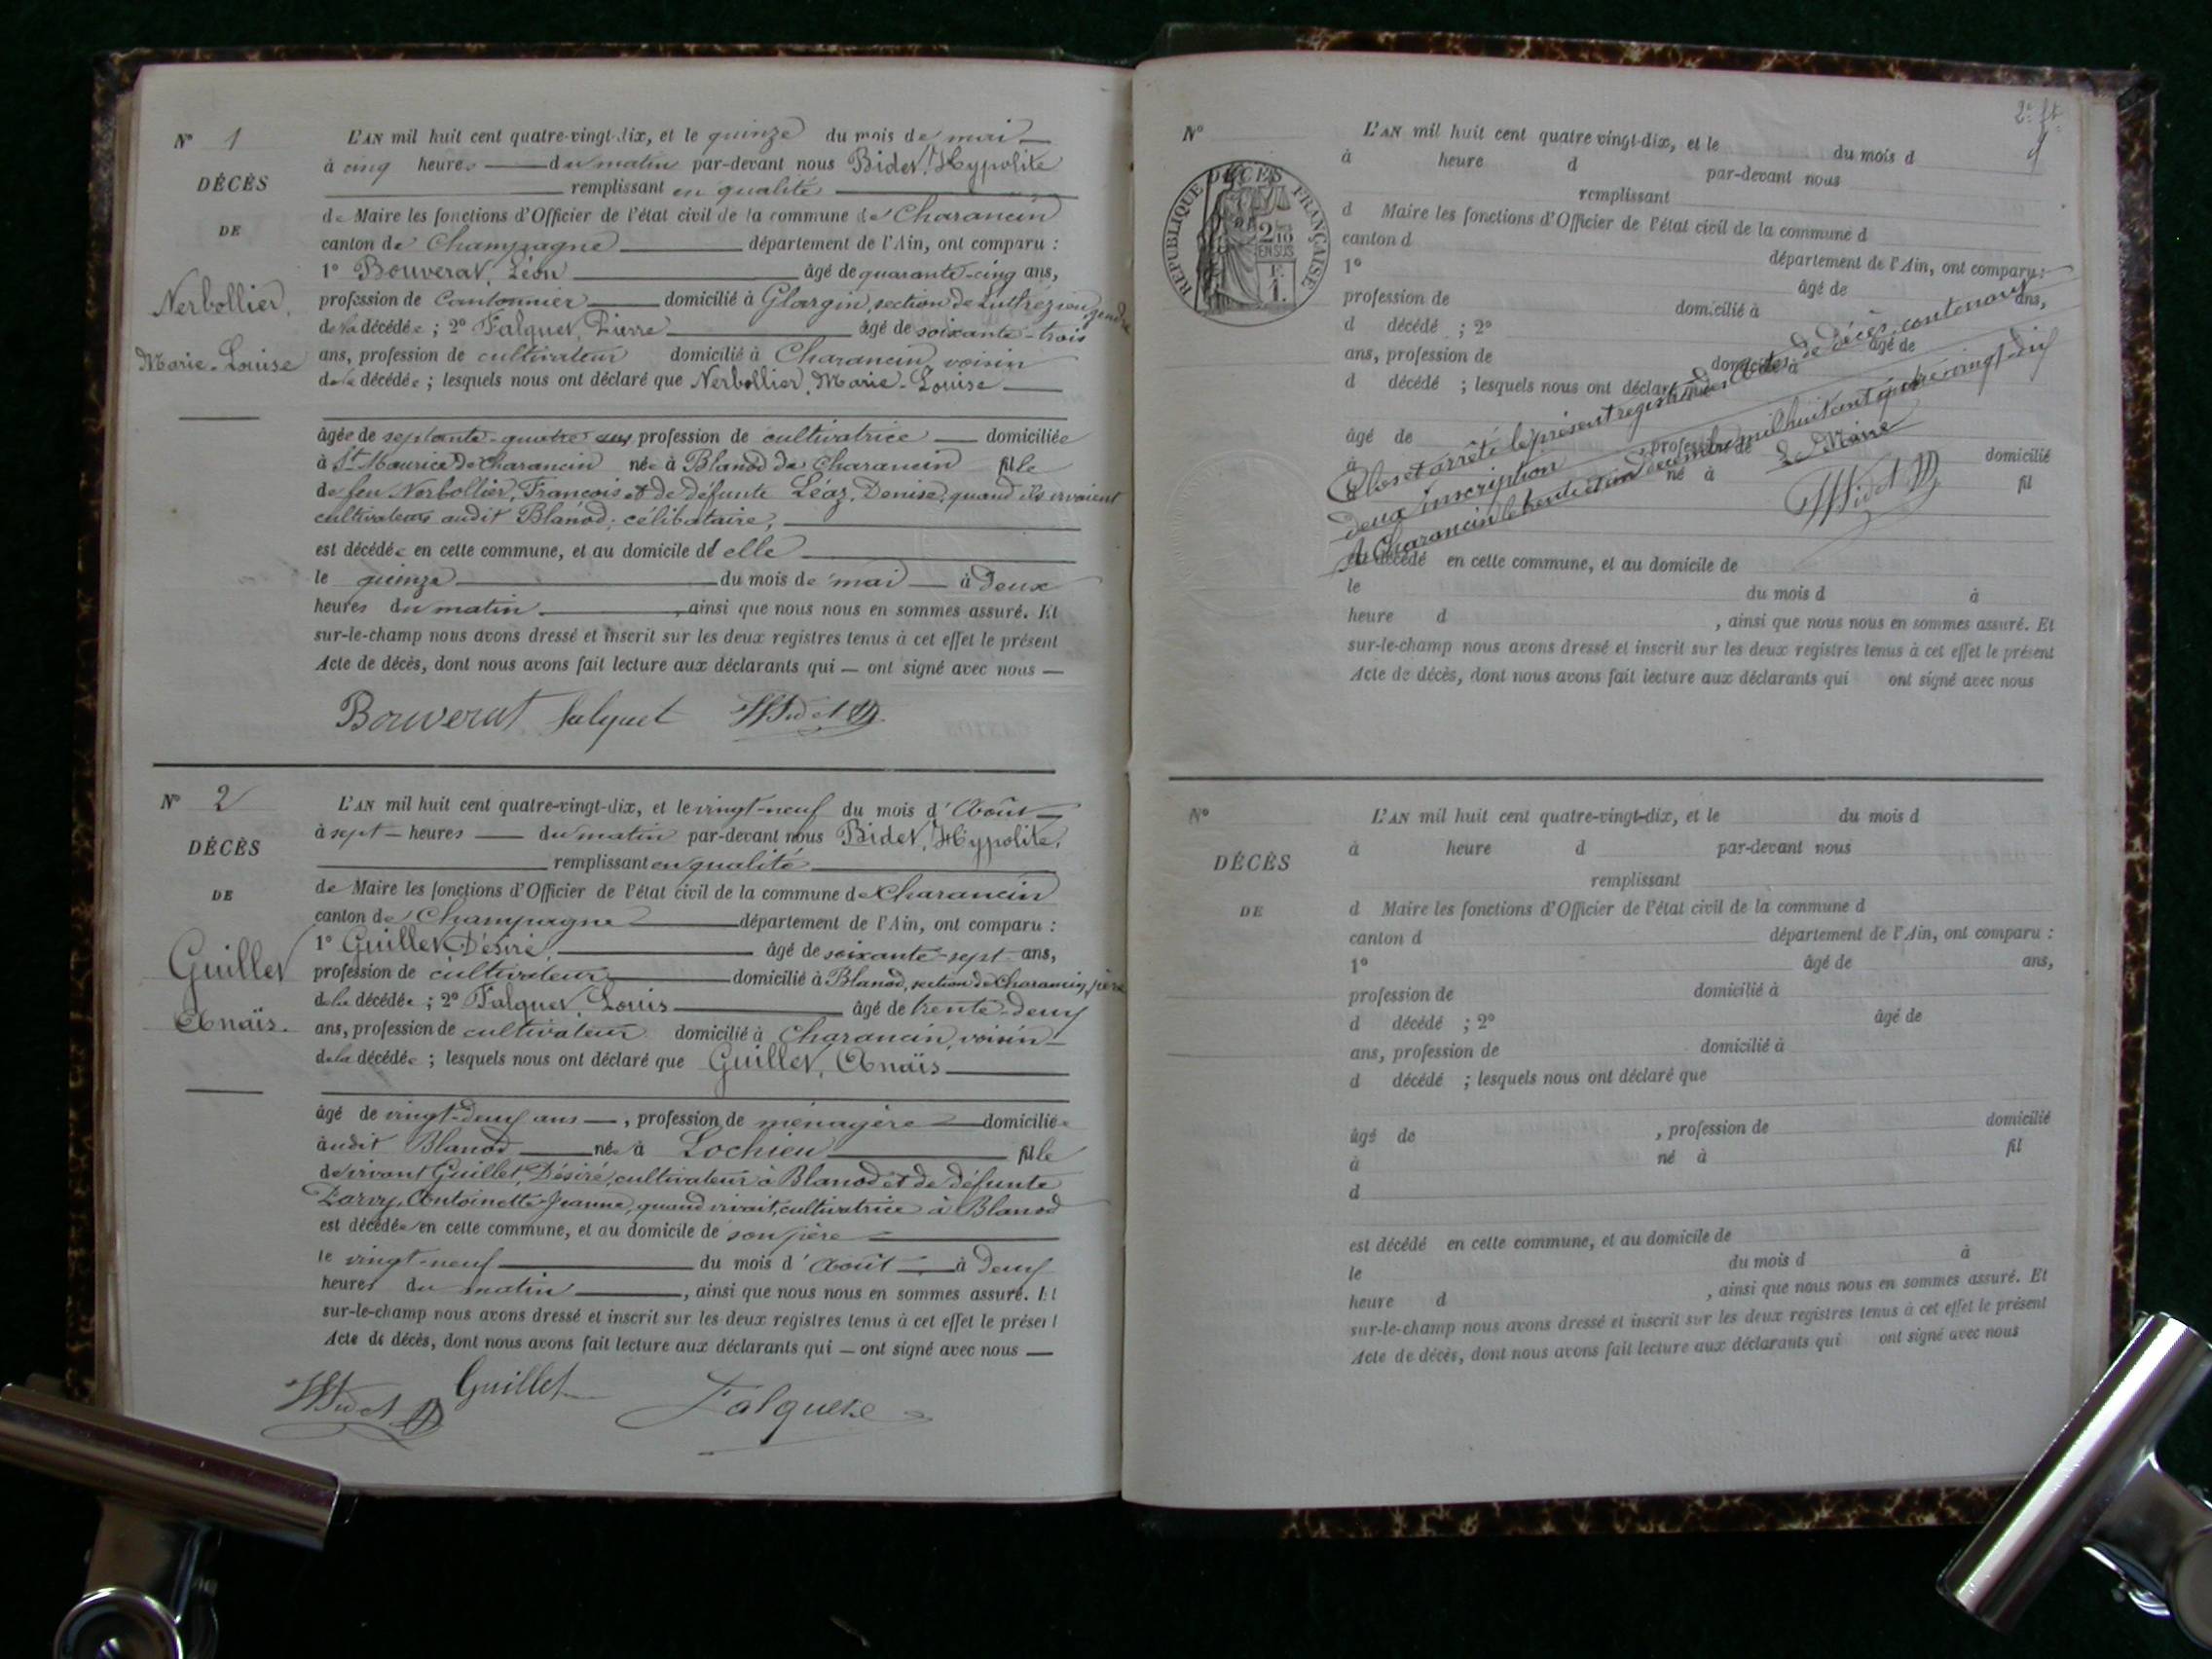 N° 1
DÉCÈS
DE
Nerbollier,
Marie-Louise
L'AN mil huit cent quatre-vingt-dix, et le quinze du mois de mai
à cinq heures du matin par-devant nous Bidet, Hypolite
remplissant en qualité
de Maire les fonctions d'Officier de l'état civil de la commune de Charancin
canton de Champagne département de l'Ain, ont comparu :
1° Bouverat, Léon âgé de quarante-cinq ans,
profession de Cantonnier domicilié à Glargin, section de Luthézieu, gendre
de la décédée ; 2° Falquet, Pierre âgé de soixante-trois
ans, profession de cultivateur domicilié à Charancin, voisin
de la décédée ; lesquels nous ont déclaré que Nerbollier, Marie-Louise
âgée de septante-quatre ans profession de cultivatrice domiciliée
à St Maurice de Charancin née à Blanod de Charancin fille
de feu Nerbollier, François et de défunte Léaz, Denise, quand ils vivaient
cultivateurs audit Blanod ; célibataire,
est décédée en cette commune, et au domicile d'elle
le quinze du mois de mai à deux
heures du matin, ainsi que nous nous en sommes assuré. Et
sur-le-champ nous avons dressé et inscrit sur les deux registres tenus à cet effet le présent
Acte de décès, dont nous avons fait lecture aux déclarants qui — ont signé avec nous —
Bouverat falquet HBidet
N° 2
DÉCÈS
DE
Guillet
Anaïs.
L'AN mil huit cent quatre-vingt-dix, et le vingt-neuf du mois d'Août
à sept heures du matin par-devant nous Bidet, Hypolite,
remplissant en qualité
de Maire les fonctions d'Officier de l'état civil de la commune de Charancin
canton de Champagne département de l'Ain, ont comparu :
1° Guillet Désiré, âgé de soixante-sept ans,
profession de cultivateur domicilié à Blanod, section de Charancin, père
de la décédée ; 2° Falquet, Louis âgé de trente-deux
ans, profession de cultivateur domicilié à Charancin, voisin
de la décédée ; lesquels nous ont déclaré que Guillet, Anaïs
âgé de vingt-deux ans —, profession de ménagère domiciliée
audit Blanod née à Lochieu fille
de vivant Guillet, Désiré, cultivateur à Blanod et de défunte
Antoinette-Jeanne, quand vivait, cultivatrice à Blanod
est décédée en cette commune, et au domicile de son père
le vingt-neuf du mois d'Août à deux
heures du matin, ainsi que nous nous en sommes assuré. Et
sur-le-champ nous avons dressé et inscrit sur les deux registres tenus à cet effet le présent
Acte de décès, dont nous avons fait lecture aux déclarants qui — ont signé avec nous —
HBidet Guillet Falquet
2e ft.
N°
DÉCÈS
RÉPUBLIQUE FRANÇAISE
2/10 EN SUS
F. 1.
L'AN mil huit cent quatre vingt-dix, et le du mois d
à heure d par-devant nous
remplissant
d Maire les fonctions d'Officier de l'état civil de la commune d
canton d département de l'Ain, ont comparu :
1° âgé de ans,
profession de domicilié à
d décédé ; 2° âgé de
ans, profession de domicilié à
d décédé ; lesquels nous ont déclaré que
âgé de , profession de domicilié
à né à fil
Clos et arrêté le présent registre des actes de décès, contenant
deux inscriptions
A Charancin le trente et un décembre mil huit cent quatre vingt-dix
Le Maire
HBidet
est décédé en cette commune, et au domicile de
le du mois d à
heure d , ainsi que nous nous en sommes assuré. Et
sur-le-champ nous avons dressé et inscrit sur les deux registres tenus à cet effet le présent
Acte de décès, dont nous avons fait lecture aux déclarants qui ont signé avec nous
N°
DÉCÈS
DE
L'AN mil huit cent quatre-vingt-dix, et le du mois d
à heure d par-devant nous
remplissant
d Maire les fonctions d'Officier de l'état civil de la commune d
canton d département de l'Ain, ont comparu :
1° âgé de ans,
profession de domicilié à
d décédé ; 2° âgé de
ans, profession de domicilié à
d décédé ; lesquels nous ont déclaré que
âgé de , profession de domicilié
à né à fil
d
est décédé en cette commune, et au domicile de
le du mois d à
heure d , ainsi que nous nous en sommes assuré. Et
sur-le-champ nous avons dressé et inscrit sur les deux registres tenus à cet effet le présent
Acte de décès, dont nous avons fait lecture aux déclarants qui ont signé avec nous